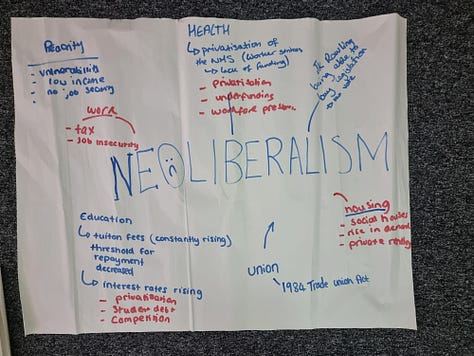 HEALTH
↳ privatisation of
the NHS (worker strikes
↳ lack of funding)
- privatisation
- underfunding
- workforce pressure
- vulnerability
- low income
- no job security
work
- tax
- job insecurity
JK Rowling
being able to
buy legislation
NEOLIBERALISM
housing
- social houses
- rise in demand
- private renting
Education
↳ tuition fees (constantly rising)
threshold for
repayment
decreased
↳ interest rates rising
- privatisation
- student debt
- competition
union
1984 Trade union Act